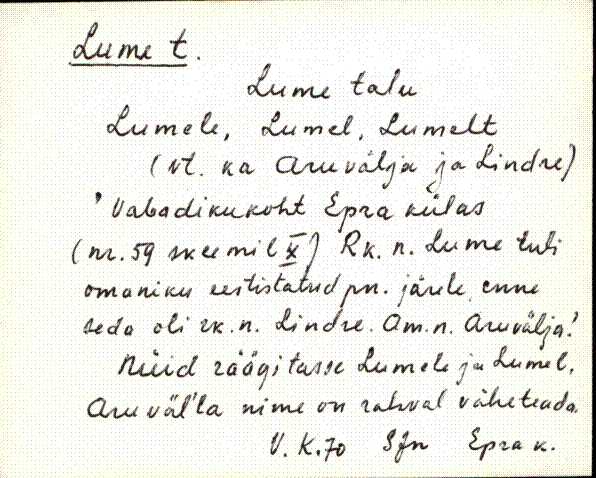 Lume t.
Lume talu
Lumele, Lumel, Lumelt
(vt. ka Aruvälja ja Lindre)
'Vabadikukoht Epra külas
(nr. 59 skeemil X) Rk. n. Lume tuli
omaniku eestistatud pn. järele, enne
seda oli rk. n. Lindre. Am. n. Aruvälja.'
Nüid räägitasse Lumele ja Lumel,
Aruväl'la nime on rahval vähe teada.
V. K. 70 SJn Epra k.